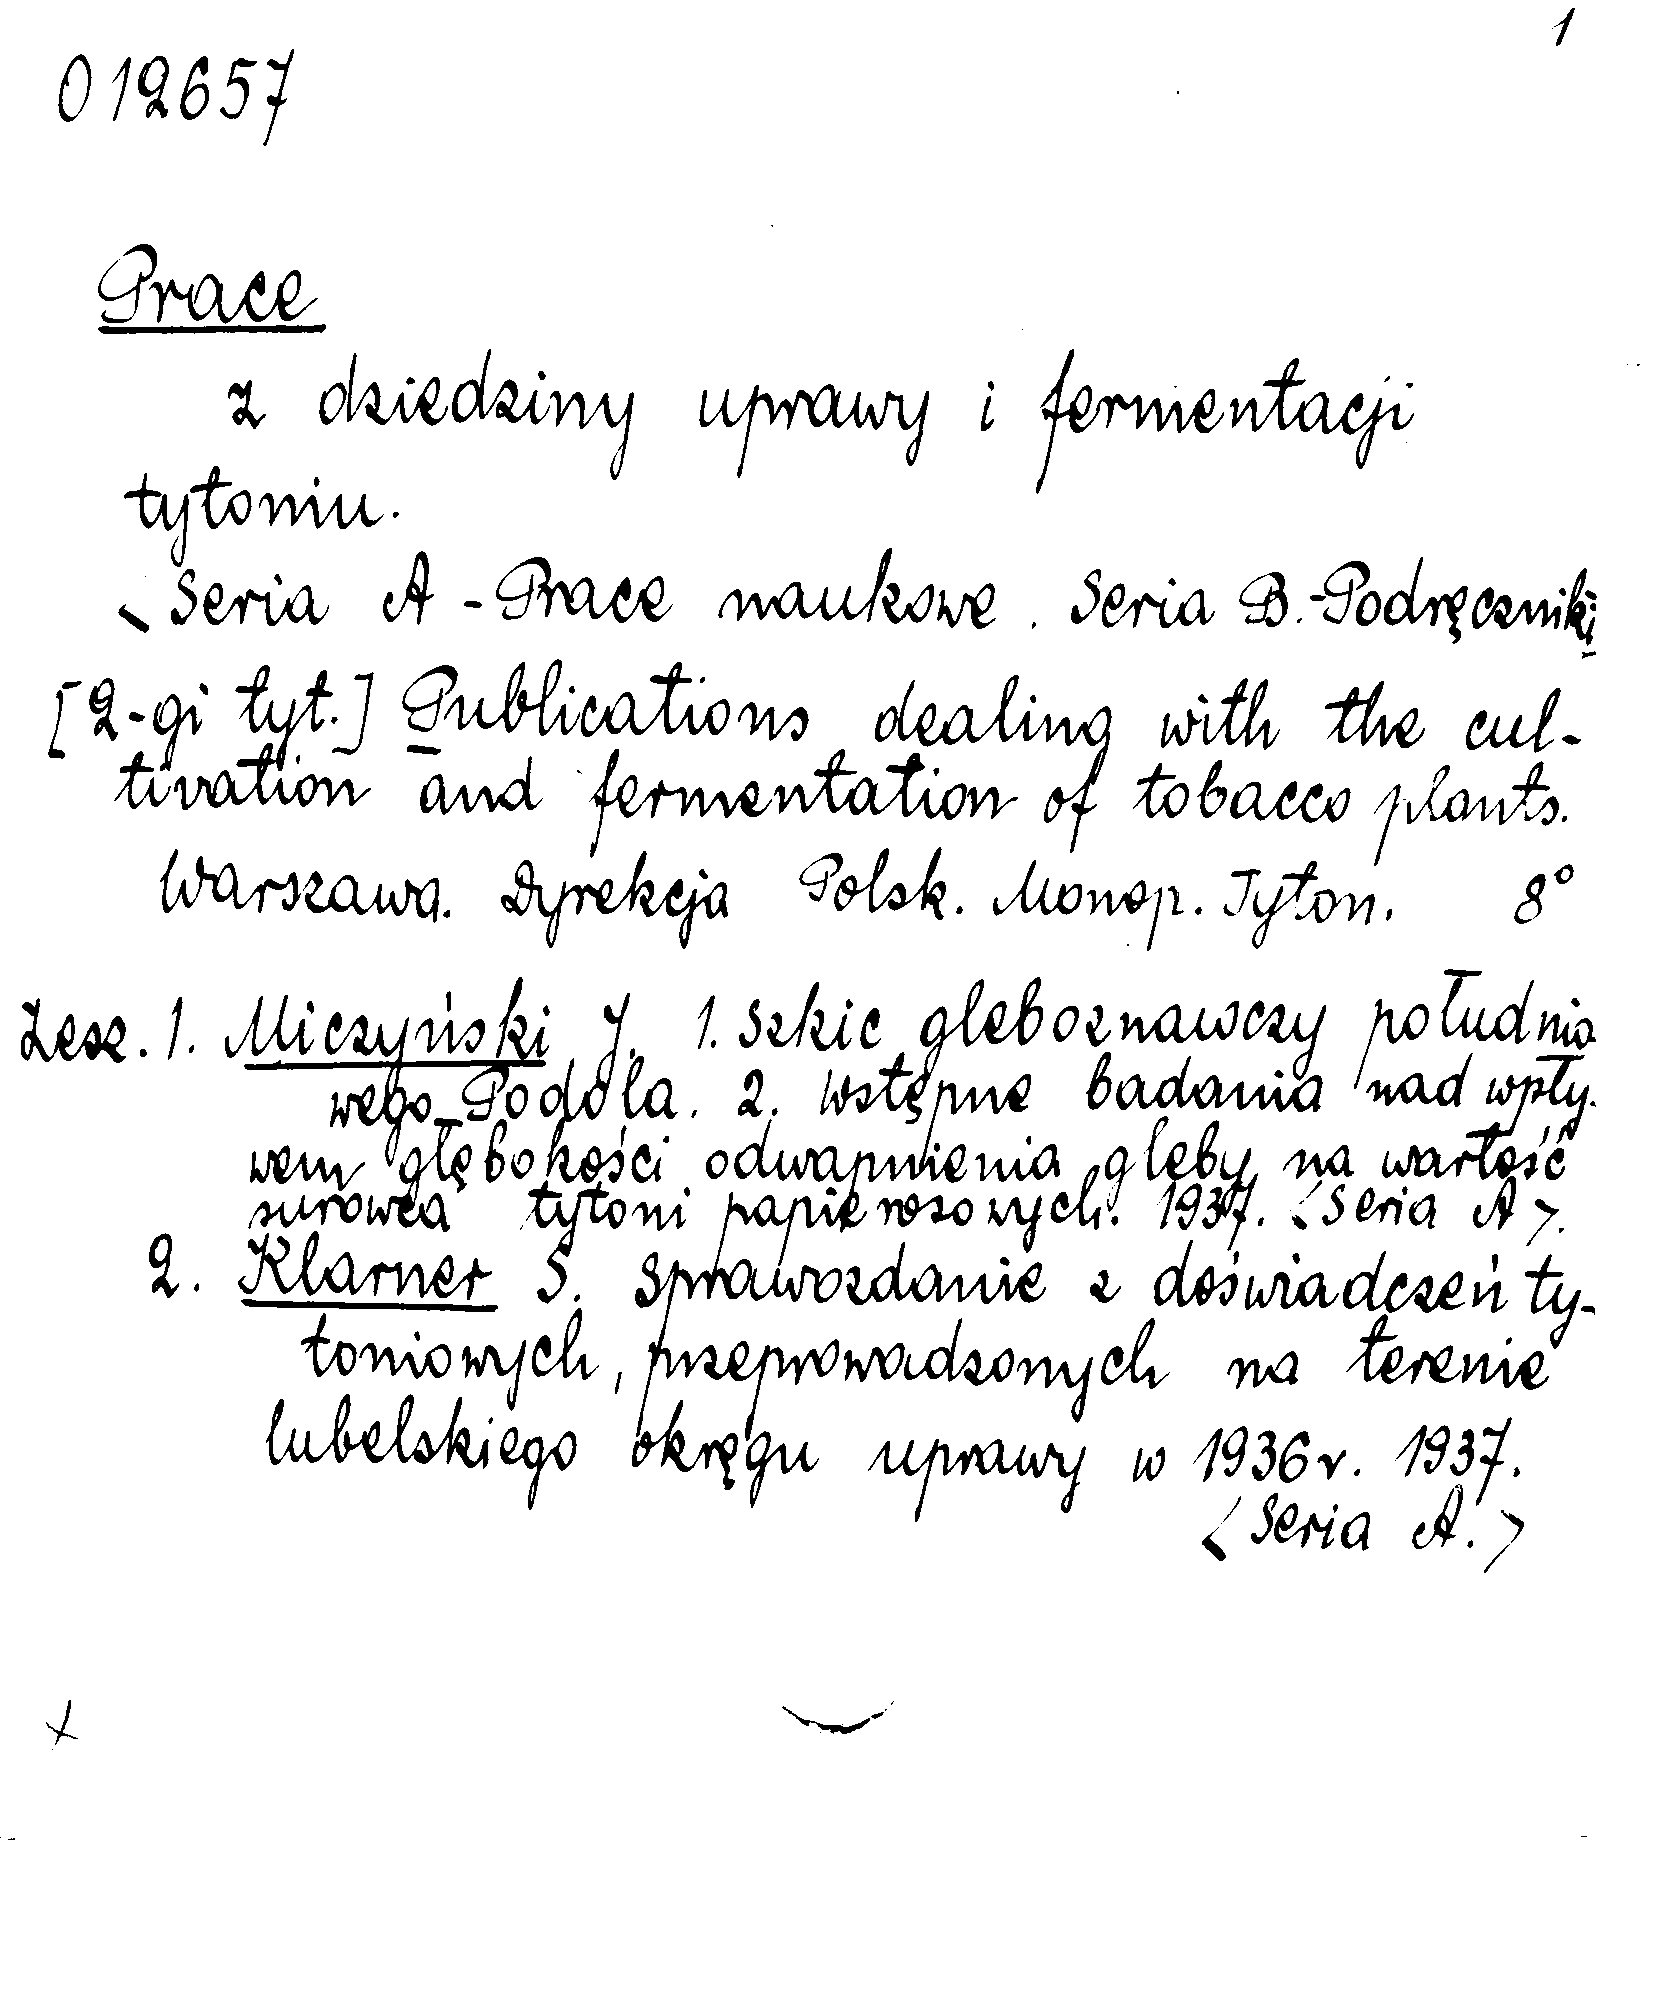 1
012657
Prace
z dziedziny uprawy i fermentacji
tytoniu.
<Seria A - Prace naukowe. Seria B.-Podręczniki
[2-gi tyt.] Publications dealing with the cul-
tivation and fermentation of tobacco plants.
Warszawa. Dyrekcja Polsk. Monop. Tyton. 8°
Zesz. 1. Miczyński J. 1. Szkic gleboznawczy południo
wego Podola. 2. Wstępne badania nad wpły-
wem głębokości odwapnienia gleby na wartość
surowca tytoni papierosowych. 1937. <Seria A>.
2. Klarner S. Sprawozdanie z doświadczeń ty-
toniowych, przeprowadzonych na terenie
lubelskiego okręgu uprawy w 1936 r. 1937.
<Seria A.>